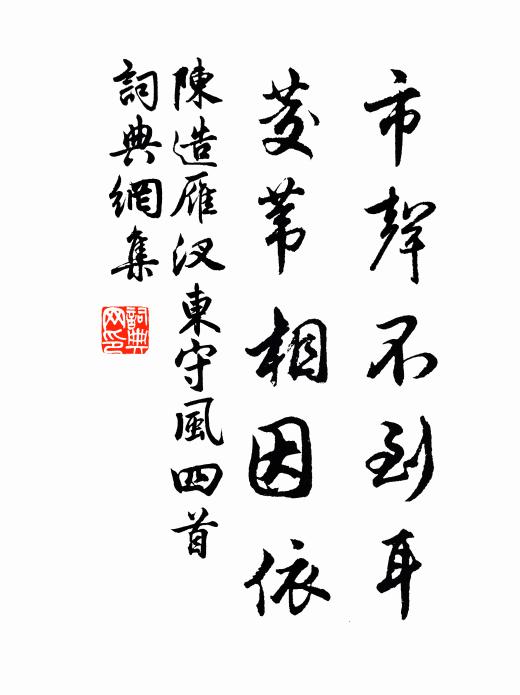 市聲不到耳
茭葦相因依
陳造雁汊東守風四首
詞典網集
詞典
网印